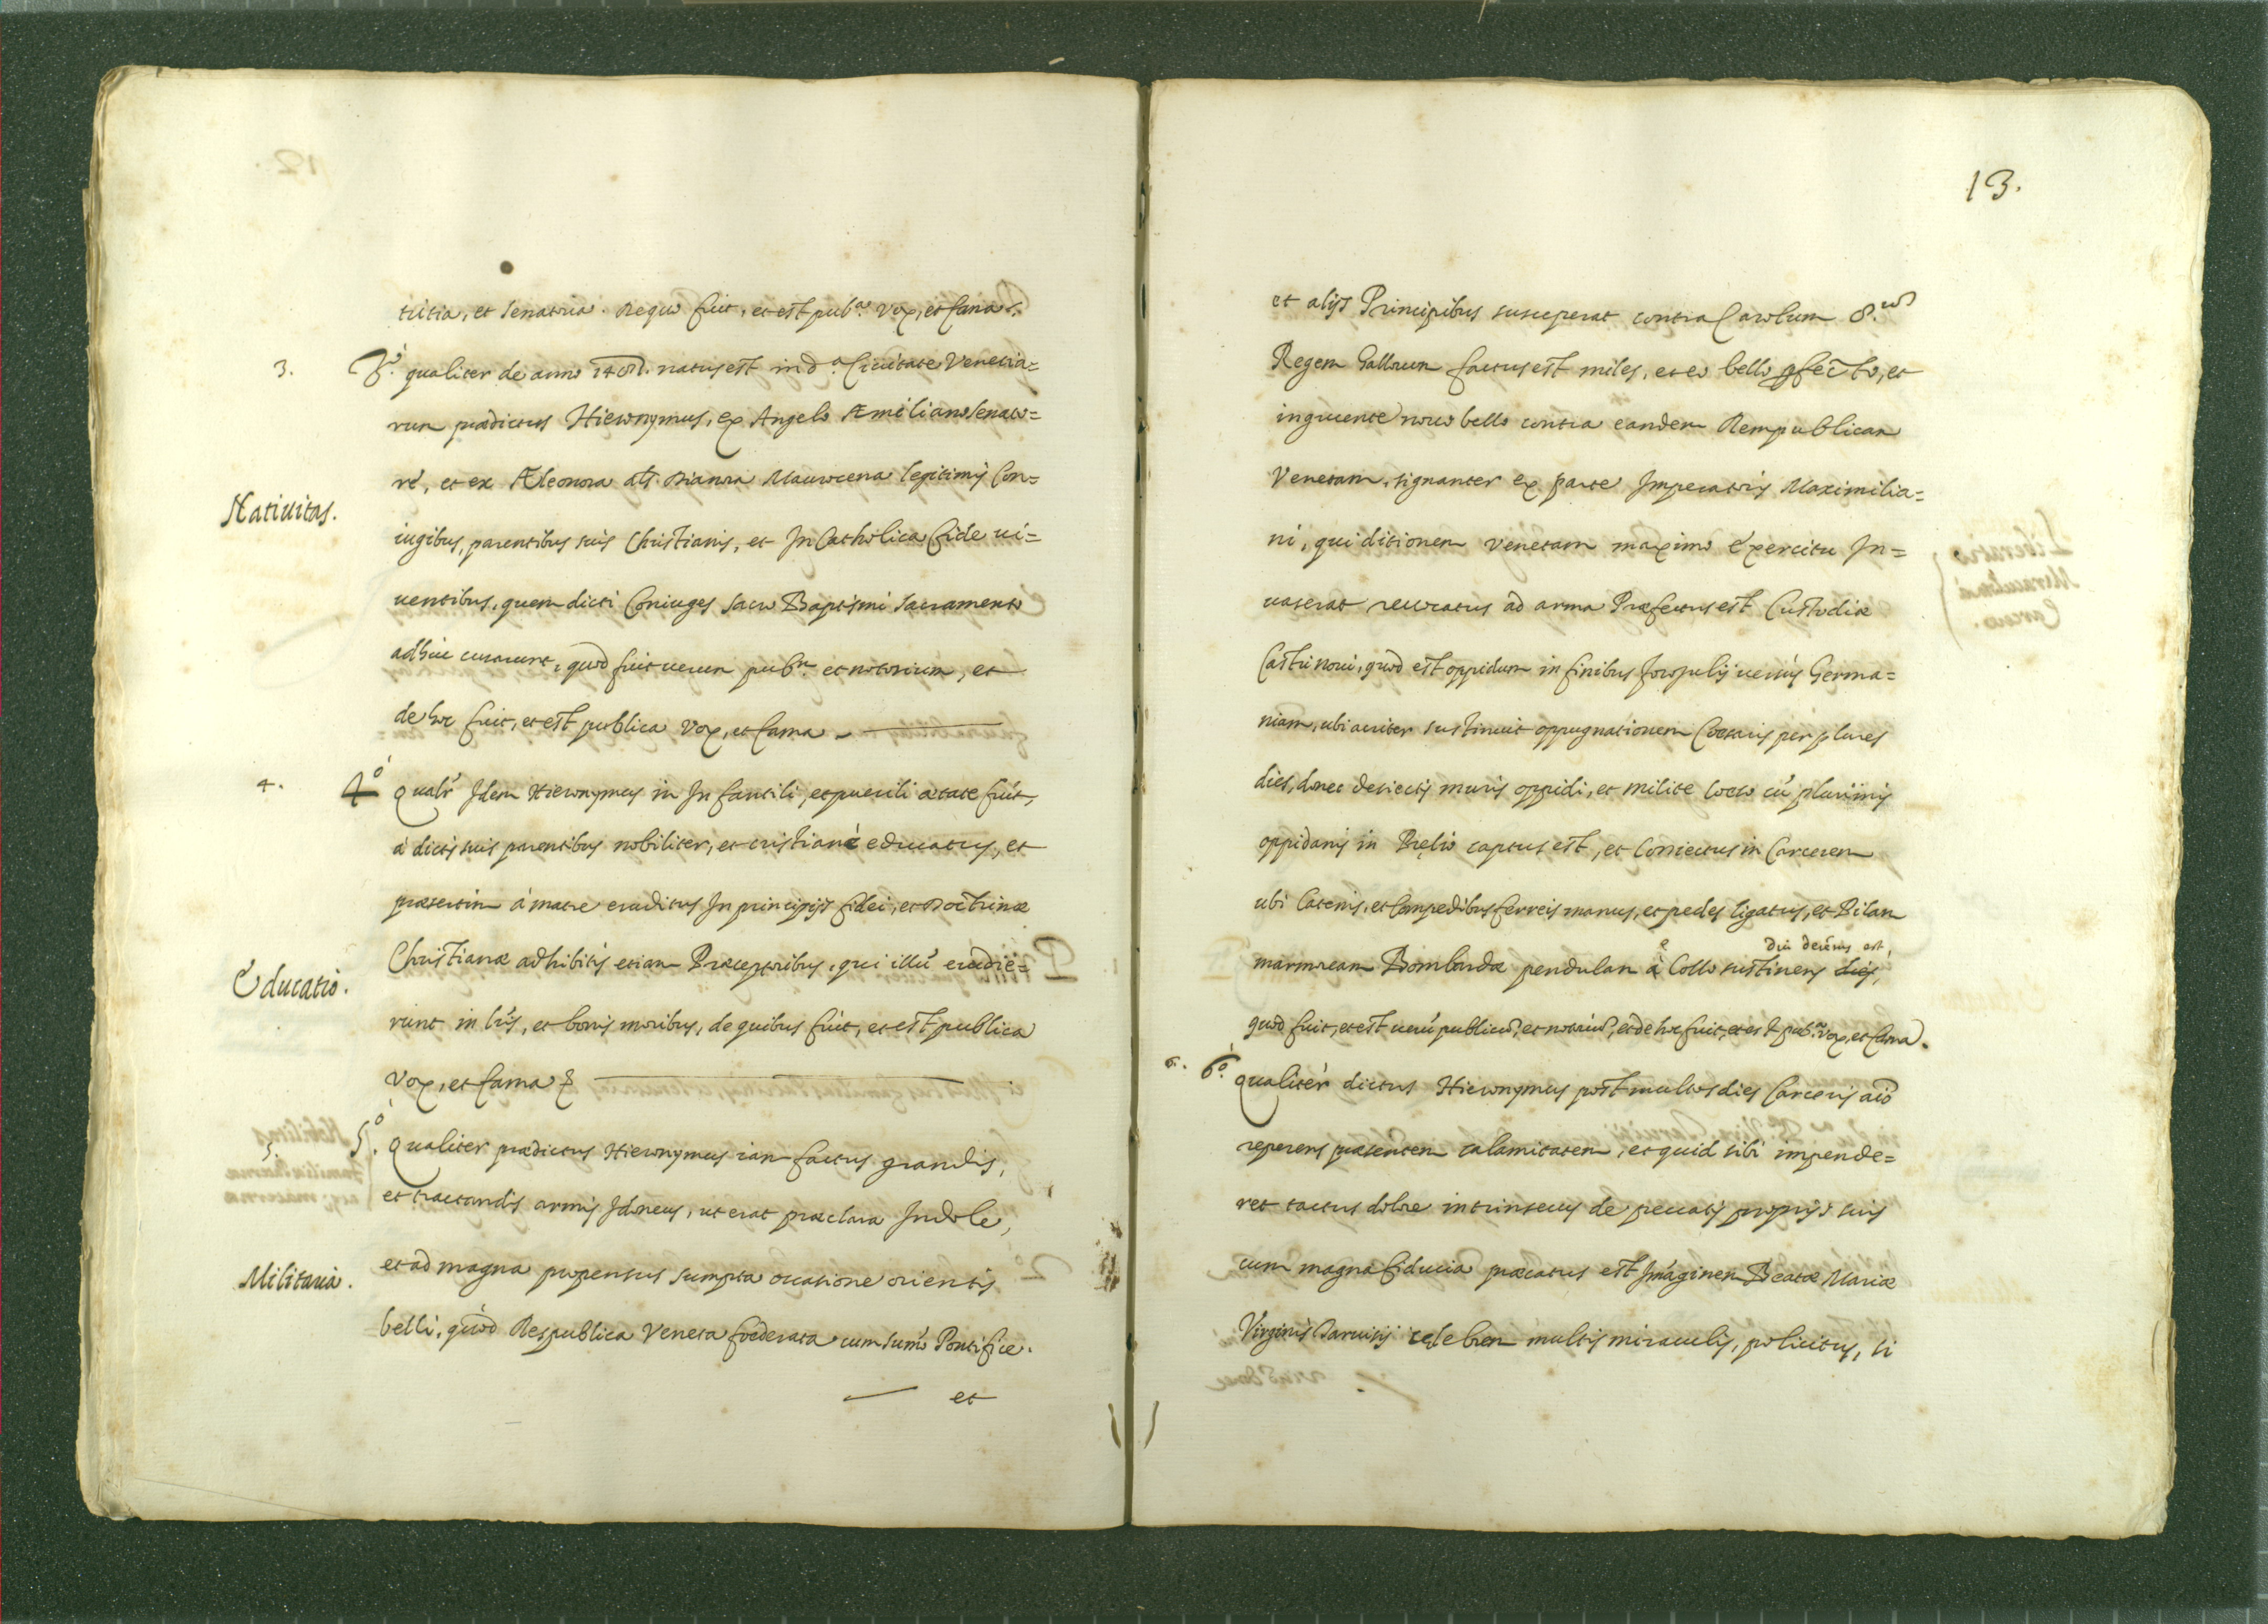 tritia, et senatoria. Reque fuit, et est pub.ª vox, et fama &.
3. 3.º qualiter de anno natus est in d.ª Ciuitate Venetia=
rum prædictus Hieronymus, ex Angelo Æmiliano senato=
re, et ex Æleonora als Dianora Maurocena legitimis Con=
Natiuitas.
iugibus, parentibus suis Christianis, et In Catholica fide ui=
uentibus, quem dicti Coniuges sacro Baptismi sacramento
curarunt, quod fuit uerum pub.m et notorium, et
de hoc fuit, et est publica vox, et fama
4. 4.º Qualr Idem Hieronymus in Infantili, et puerili ætate fuit,
à dictis suis parentibus nobiliter, et cristianè educatus, et
præsertim à matre eruditus In principijs fidei, et Doctrinæ
Christianæ adhibitis etiam Præceptoribus, qui illū erudie=
Educatio.
runt in lris, et bonis moribus, de quibus fuit, et est publica
vox, et fama &
5. 5.º Qualiter prædictus Hieronymus iam factus grandis,
et tractandis armis Idoneus, ut erat præclara Indole,
Militaria.
et ad magna propensus sumpta occasione orientis
belli, quòd Respublica Veneta fœderata cum sumō Pontifice.
et
13.
et alijs Principibus susceperat contra Carolum 8.um
Regem Gallorum factus est miles, et eo bello pfecto, et
ingruente nouo bello contra eandem Rempublicam
Venetam, signanter ex parte Imperatoris Maximilia=
ni, qui ditionem venetam maximo exercitu In=
uaserat reuocatus ad arma Præfectus est Custodiæ
Castri noui, quod est oppidum in finibus Foroiulij uersus Germa=
niam, ubi acriter sustinuit oppugnationem Cæsaris per plures
dies, donec deiectis muris oppidi, et milite cū plurimis
oppidanis in Prelio captus est, et Coniectus in Carcerem
ubi Catenis, et Compedibus ferreis manus, et pedes ligatus, et Pilam
diu detentus est,
marmoream Bombardæ pendulam è Collo sustinens dies,
quod fuit, et est uerū publicū, et notoriū, et de hoc fuit, et est pub.ª vox, et fama.
6. 6.º Qualiter dictus Hieronymus post multos dies Carceris aīo
reperens præsentem calamitatem, et quid sibi impende=
ret tactus dolore intrinsecus de peccatis proprijs suis
cum magna fiducia præcatus est Imaginem Beatæ Mariæ
Virginis Taruisij celebrem multis miraculis, policitus, si